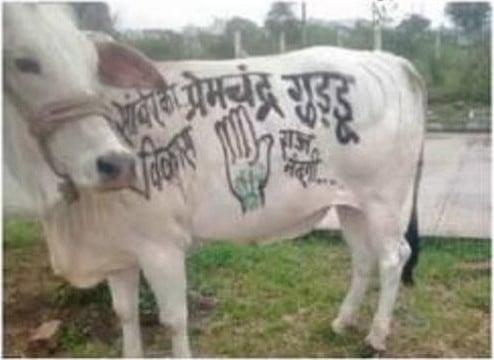 सांवेर का प्रेमचंद्र गुड्डू
विकास राज